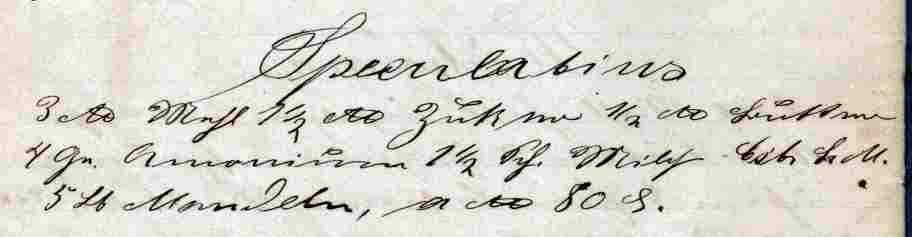 Speculatius
3 ℔ Mehl 1½ ℔ Zukker ½ ℔ Butter
4 Gr. Amonium 1½ Milch
5 Lt Mandeln, a ℔ 80 S.